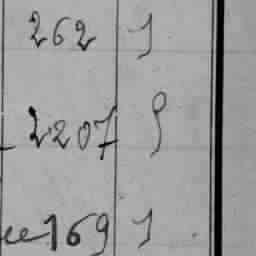 262 1
2207 9
169 1